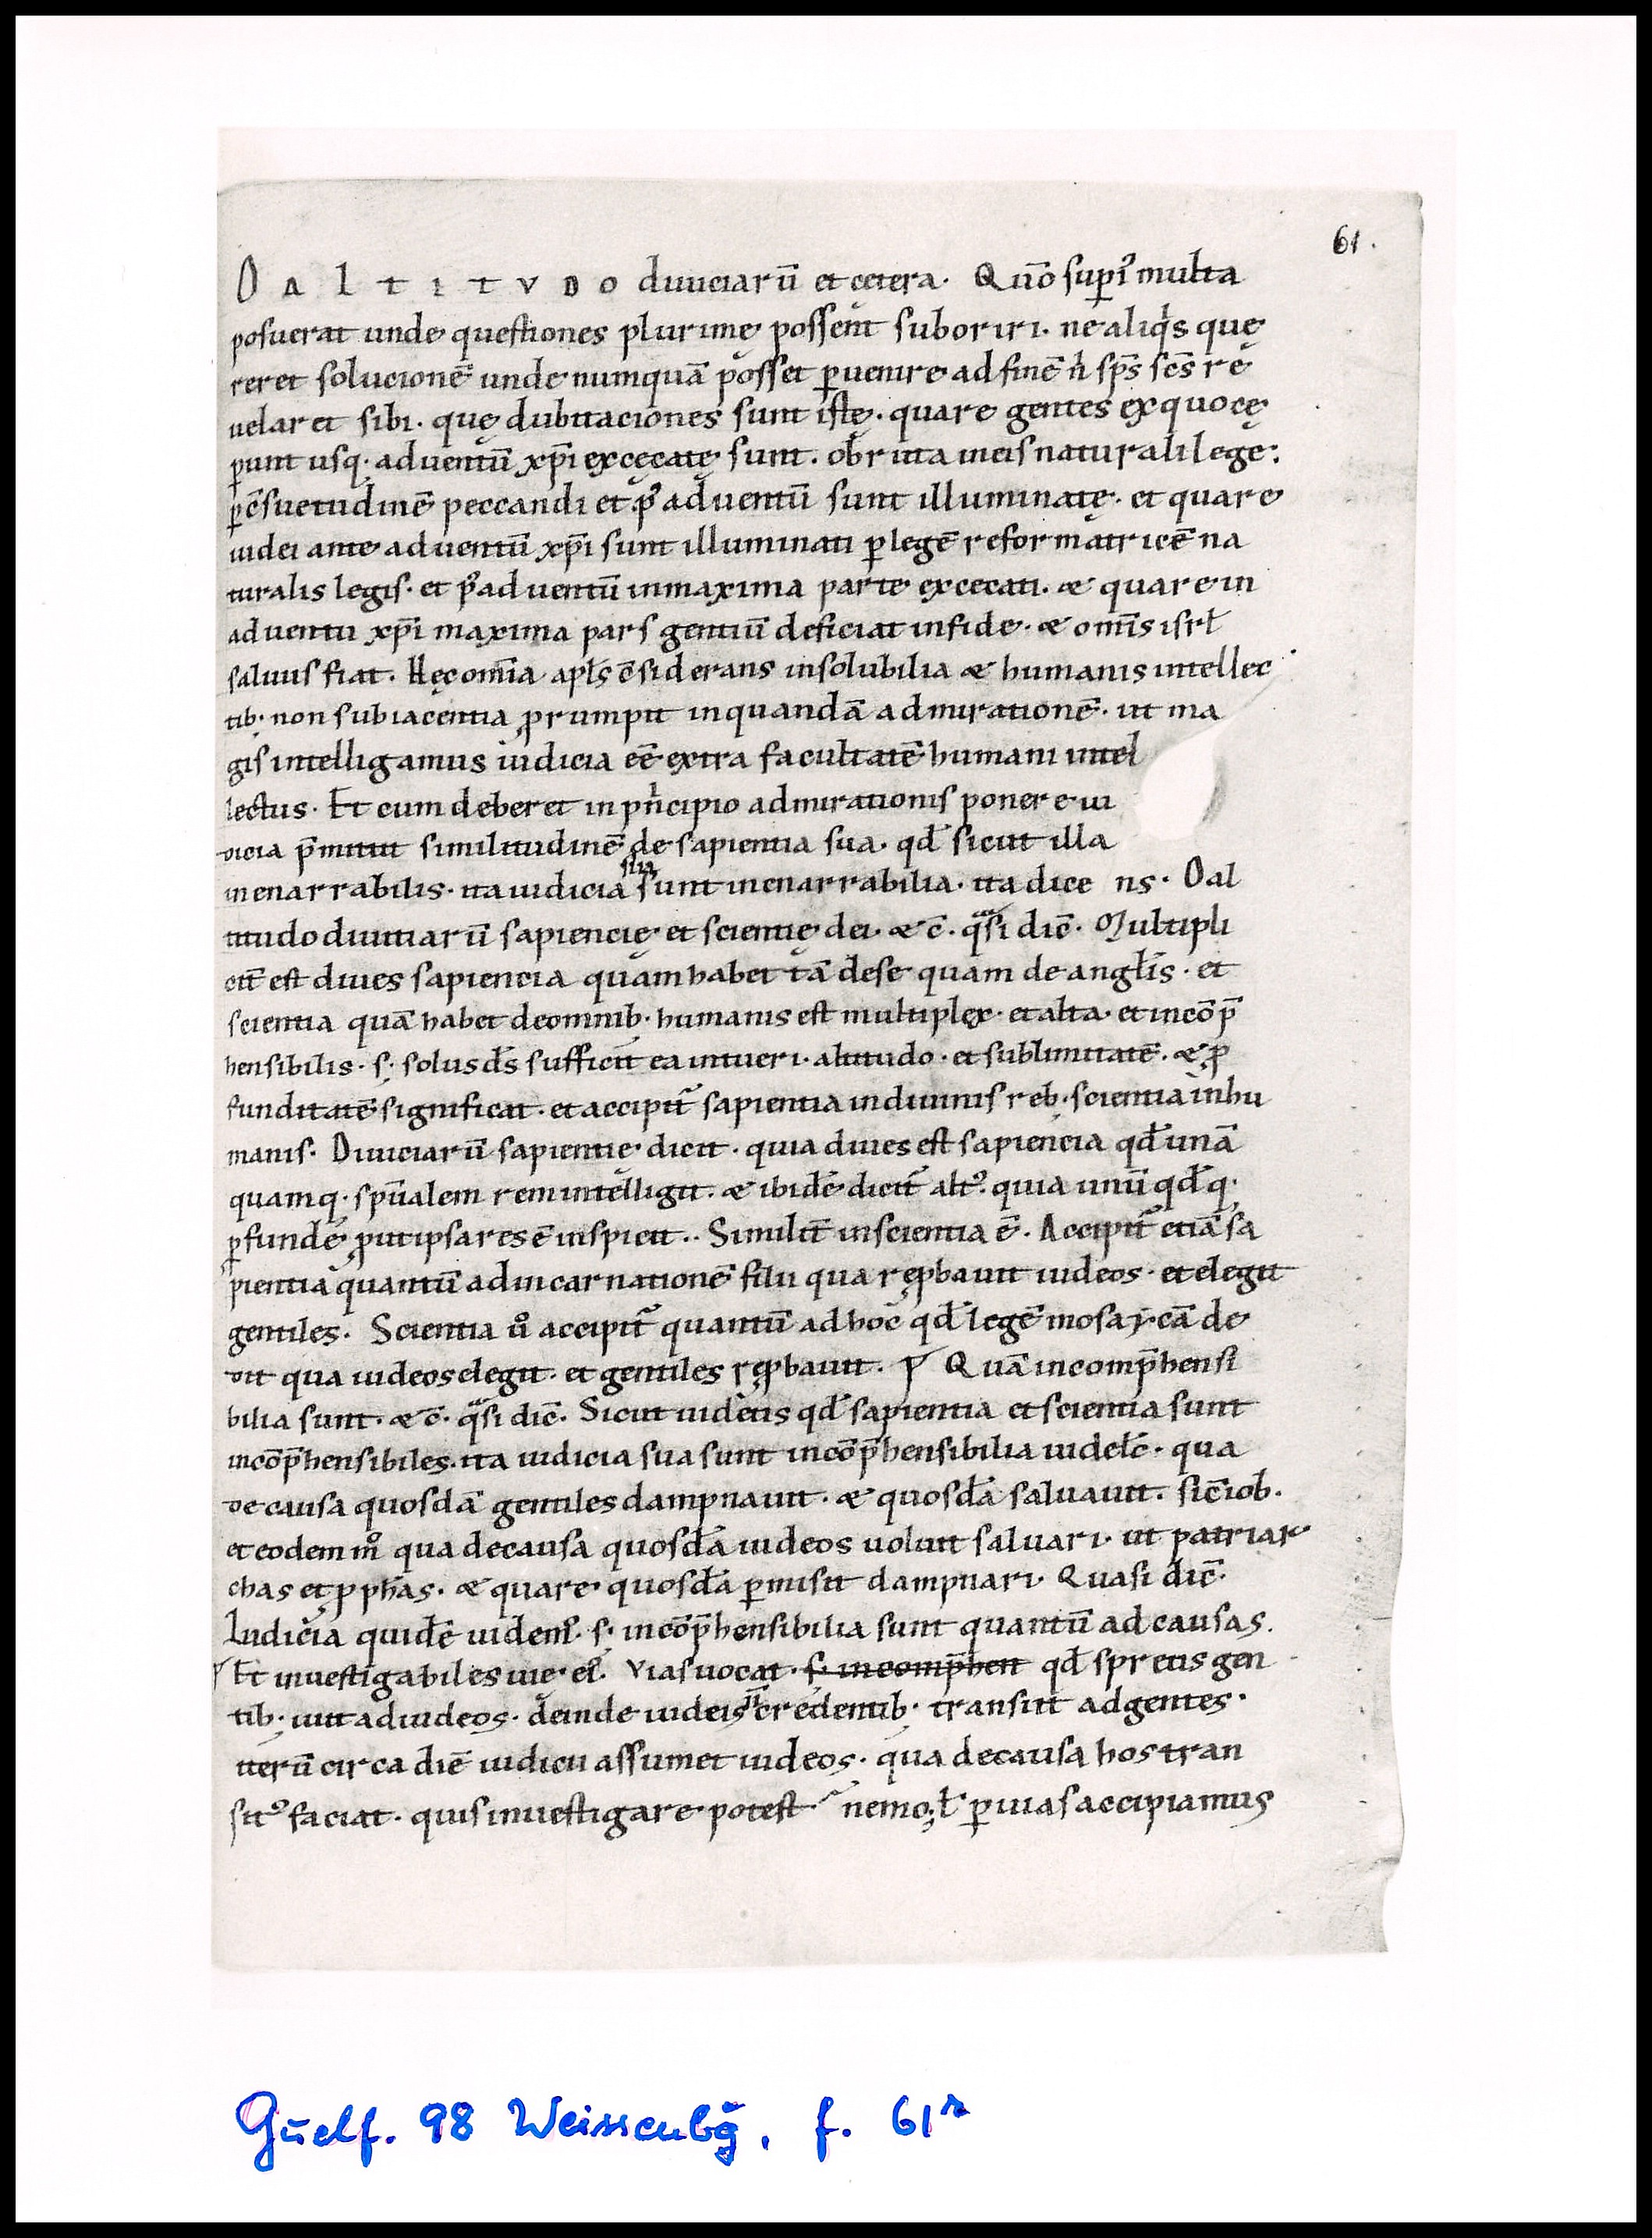 61.
O ALTITVDO diuiciarū et cętera. Qūo supi᷒ multa
posuerat unde questiones plurimę possent suboriri. ne aliqͥs quę
reret solucionē unde numquā posset ꝑuenire ad finē nͥ sp̄s sc̄s re
uelaret sibi. quę dubitaciones sunt istę. quare gentes ex quo cę
ꝑunt usq; aduentū xp̄i excęcatę sunt. obruta in eis naturali lege.
ꝑ c̄suetudinē peccandi et p᷒ aduentū sunt illuminatę. et quare
iudei ante aduentū xp̄i sunt illuminati ꝑ legē reformatricē na
turalis legis. et p᷒ aduentū in maxima parte excecati. & quare in
aduentu xp̄i maxima pars gentiū deficiat in fide. & om̄is isrł
saluus fiat. Hęc om̄ia apłs c̄siderans insolubilia & humanis intellec
tib; non subiacentia ꝓrumpit in quandā admirationē. ut ma
gis intelligamus iudicia eē extra facultatē humani intel
lectus. Et cum deberet in pͥncipio admirationis ponere iu
dicia p̄mittit similitudinē de sapientia sua. qd̄ sicut illa
inenarrabilis. ita iudicia sua sunt inenarrabilia. ita dice ns. O al
titudo diuitiarū sapiencię et scientię dei. & c̄. qͣsi dic̄. Multipli
cit̄ est diues sapiencia quam habet tā de se quam de angł̄is. et
scientia quā habet de omnib; humanis est multiplex. et alta. et incōp̄
hensibilis. s; solus d̄s sufficit̄ ea intueri. altitudo. et sublimitatē. & ꝓ
funditatē significat. et accipit᷑ sapientia in diuinis reb; scientia in hu
manis. Diuiciarū sapientię dicit. quia diues est sapiencia qd̄ unā
quamq; spūalem rem intelligit. & ibidē dicit᷑ alt᷒. quia unū qd̄ q;
ꝓfundę ꝓut ipsa res ē inspicit.. Similit̄ in scientia ē. Accipit᷑ etiā sa
pientia quantū ad incarnationē filii qua reꝓbauit iudeos. et elegit
gentiles. Scientia uͦ accipit᷑ quantū ad hoc qd̄ legē mosaycā de
dit qua iudeos elegit. et gentiles reꝓbauit. Quā incomp̄hensi
bilia sunt. & c̄. qͣsi dic̄. Sicut uidetis qd̄ sapientia et scientia sunt
incōp̄hensibiles. ita iudicia sua sunt incōp̄hensibilia uidelc̄. qua
de causa quosdā gentiles dampnauit. & quosdā saluauit. sic̄ iob.
et eodem mͦ qua de causa quosdā iudeos uoluit saluari. ut patriar
chas et ꝓphās. & quare quosdā ꝑmisit dampnari. Quasi dic̄.
Iudicia quidē uidem᷒. s; incōp̄hensibilia sunt quantū ad causas.
Et inuestigabiles uię ei᷒. Vias uocat. s; incomp̄hen qd̄ spretis gen
tib; iuit ad iudeos. deinde iudeis n̄ credentib; transiit ad gentes.
iterū circa diē iudicii assumet iudeos. qua de causa hos tran
sit᷒ faciat. quis inuestigare potest nemo; ł ꝑ uias accipiamus
Guelf. 98 Weissenbg., f. 61r